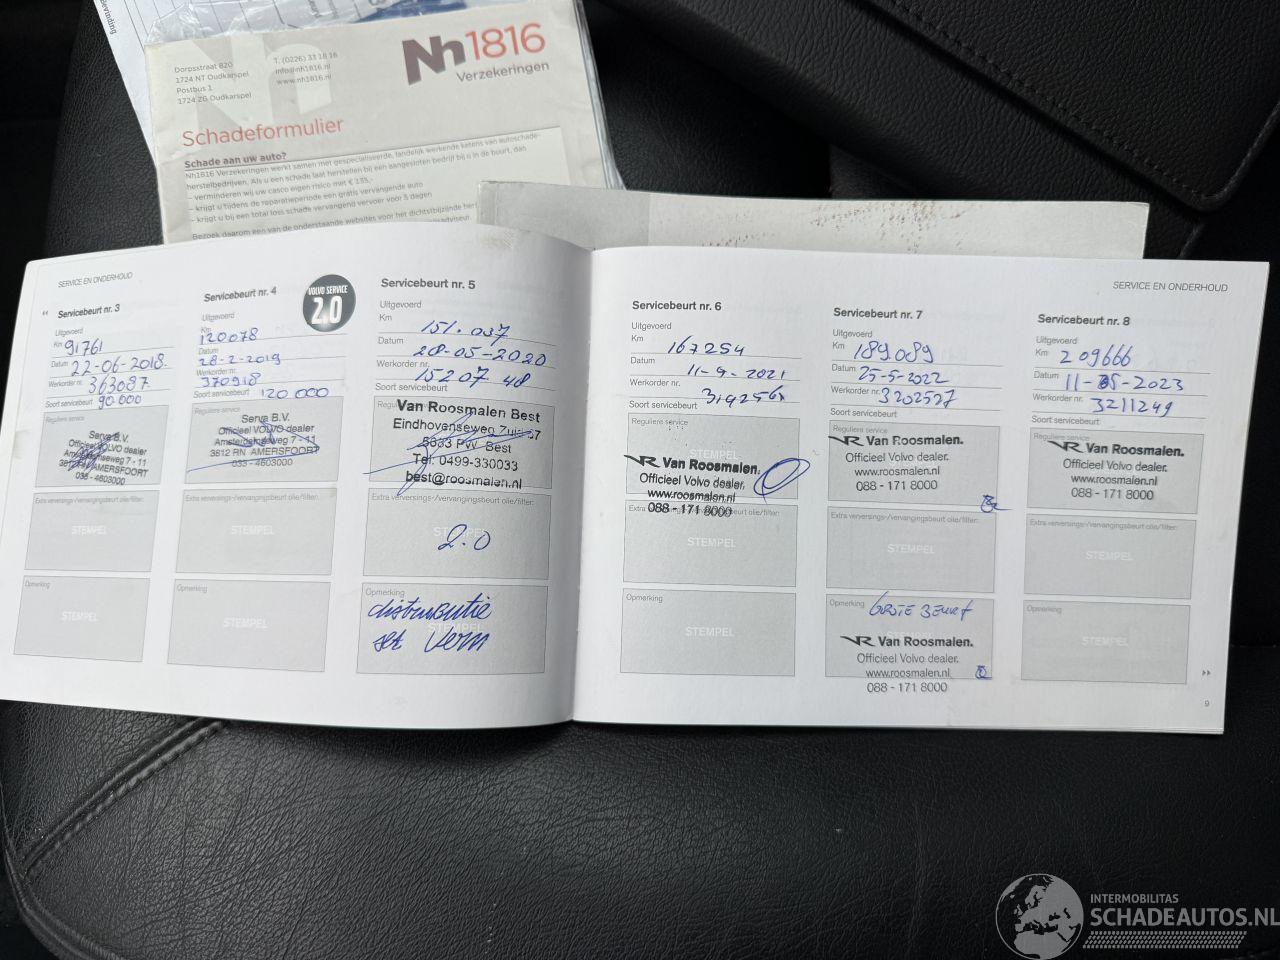 bevinding
Dorpsstraat 820
1724 NT Oudkarspel
Postbus 1
1724 ZG Oudkarspel
T. (0226) 33 18 16
info@nh1816.nl
www.nh1816.nl
Nh1816
Verzekeringen
Schadeformulier
Schade aan uw auto?
Nh1816 Verzekeringen werkt samen met gespecialiseerde, landelijk werkende ketens van autoschade-
herstelbedrijven. Als u een schade laat herstellen bij een aangesloten bedrijf bij u in de buurt, dan
– verminderen wij uw casco eigen risico met € 135,-
– krijgt u tijdens de reparatieperiode een gratis vervangende auto
– krijgt u bij een total loss schade vervangend vervoer voor 5 dagen
Bezoek daarom een van de onderstaande websites voor het dichtstbijzijnde
SERVICE EN ONDERHOUD
Servicebeurt nr. 3
Uitgevoerd
Km 91761
Datum 22-06-2018
Werkorder nr. 363087
Soort servicebeurt 90 000
Reguliere service
Serva B.V.
Officieel VOLVO dealer
Amsterdamseweg 7 - 11
3812 RN AMERSFOORT
033 - 4603000
Extra verversings-/vervangingsbeurt olie/filter:
STEMPEL
Opmerking
STEMPEL
Servicebeurt nr. 4
VOLVO SERVICE
2.0
Uitgevoerd
Km 120078
Datum 28-2-2019
Werkorder nr. 370918
Soort servicebeurt 120 000
Reguliere service
Serva B.V.
Officieel VOLVO dealer
Amsterdamseweg 7 - 11
3812 RN AMERSFOORT
033 - 4603000
Extra verversings-/vervangingsbeurt olie/filter:
STEMPEL
Opmerking
STEMPEL
Servicebeurt nr. 5
Uitgevoerd
Km 151.037
Datum 28-05-2020
Werkorder nr. 15207 48
Soort servicebeurt
Van Roosmalen Best
Eindhovenseweg Zuid 37
5683 PW Best
Tel. 0499-330033
best@roosmalen.nl
Extra verversings-/vervangingsbeurt olie/filter:
2.0
Opmerking
STEMPEL
distributie
set vern
Servicebeurt nr. 6
Uitgevoerd
Km 167254
Datum 11-9-2021
Werkorder nr.
Soort servicebeurt
Reguliere service
STEMPEL
VR Van Roosmalen.
Officieel Volvo dealer.
www.roosmalen.nl
088 - 171 8000
STEMPEL
Opmerking
STEMPEL
SERVICE EN ONDERHOUD
Servicebeurt nr. 7
Uitgevoerd
Km 189089
Datum 25-5-2022
Werkorder nr. 3202527
Soort servicebeurt
Reguliere service
VR Van Roosmalen.
Officieel Volvo dealer.
www.roosmalen.nl
088 - 171 8000
Extra verversings-/vervangingsbeurt olie/filter:
STEMPEL
Opmerking GROTE BEURT
VR Van Roosmalen.
Officieel Volvo dealer.
www.roosmalen.nl
088 - 171 8000
Servicebeurt nr. 8
Uitgevoerd
Km 209666
Datum 11-05-2023
Werkorder nr. 3211249
Soort servicebeurt
Reguliere service
VR Van Roosmalen.
Officieel Volvo dealer.
www.roosmalen.nl
088 - 171 8000
Extra verversings-/vervangingsbeurt olie/filter:
STEMPEL
Opmerking
STEMPEL
9
INTERMOBILITAS
SCHADEAUTOS.NL